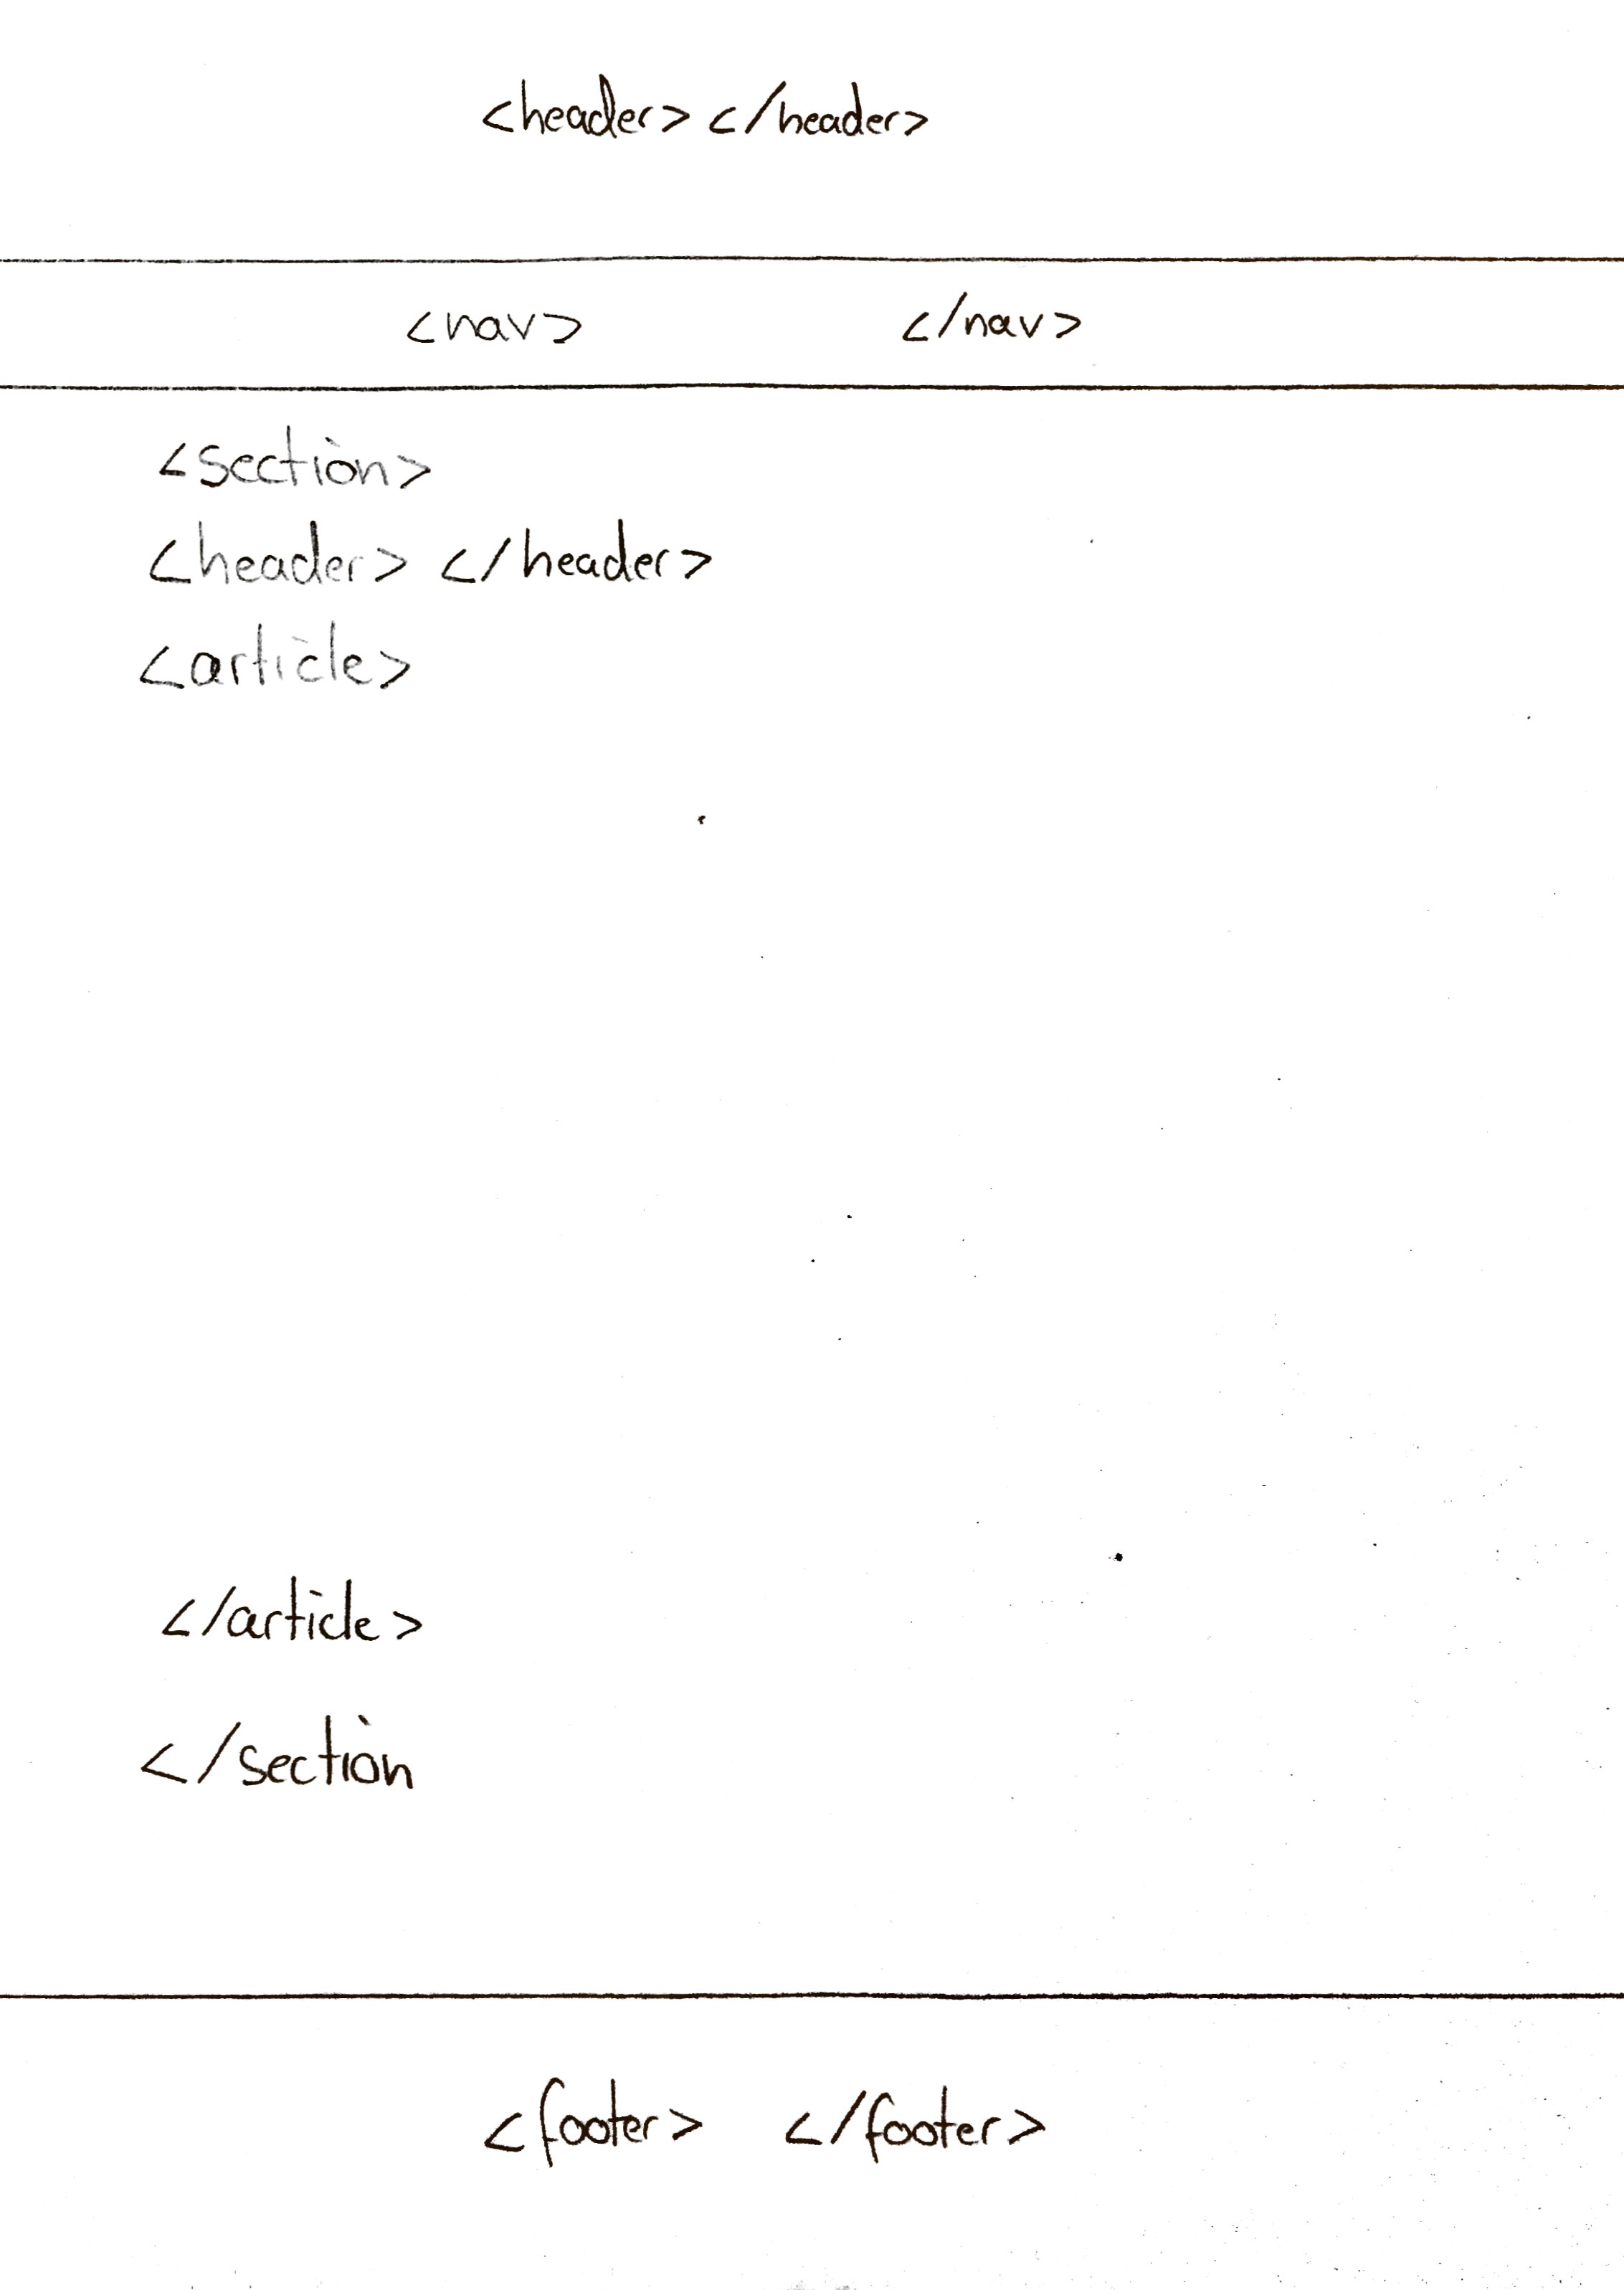 <header></header>
<nav> </nav>
<section>
<header> </header>
<article>
</article>
</section
<footer> </footer>